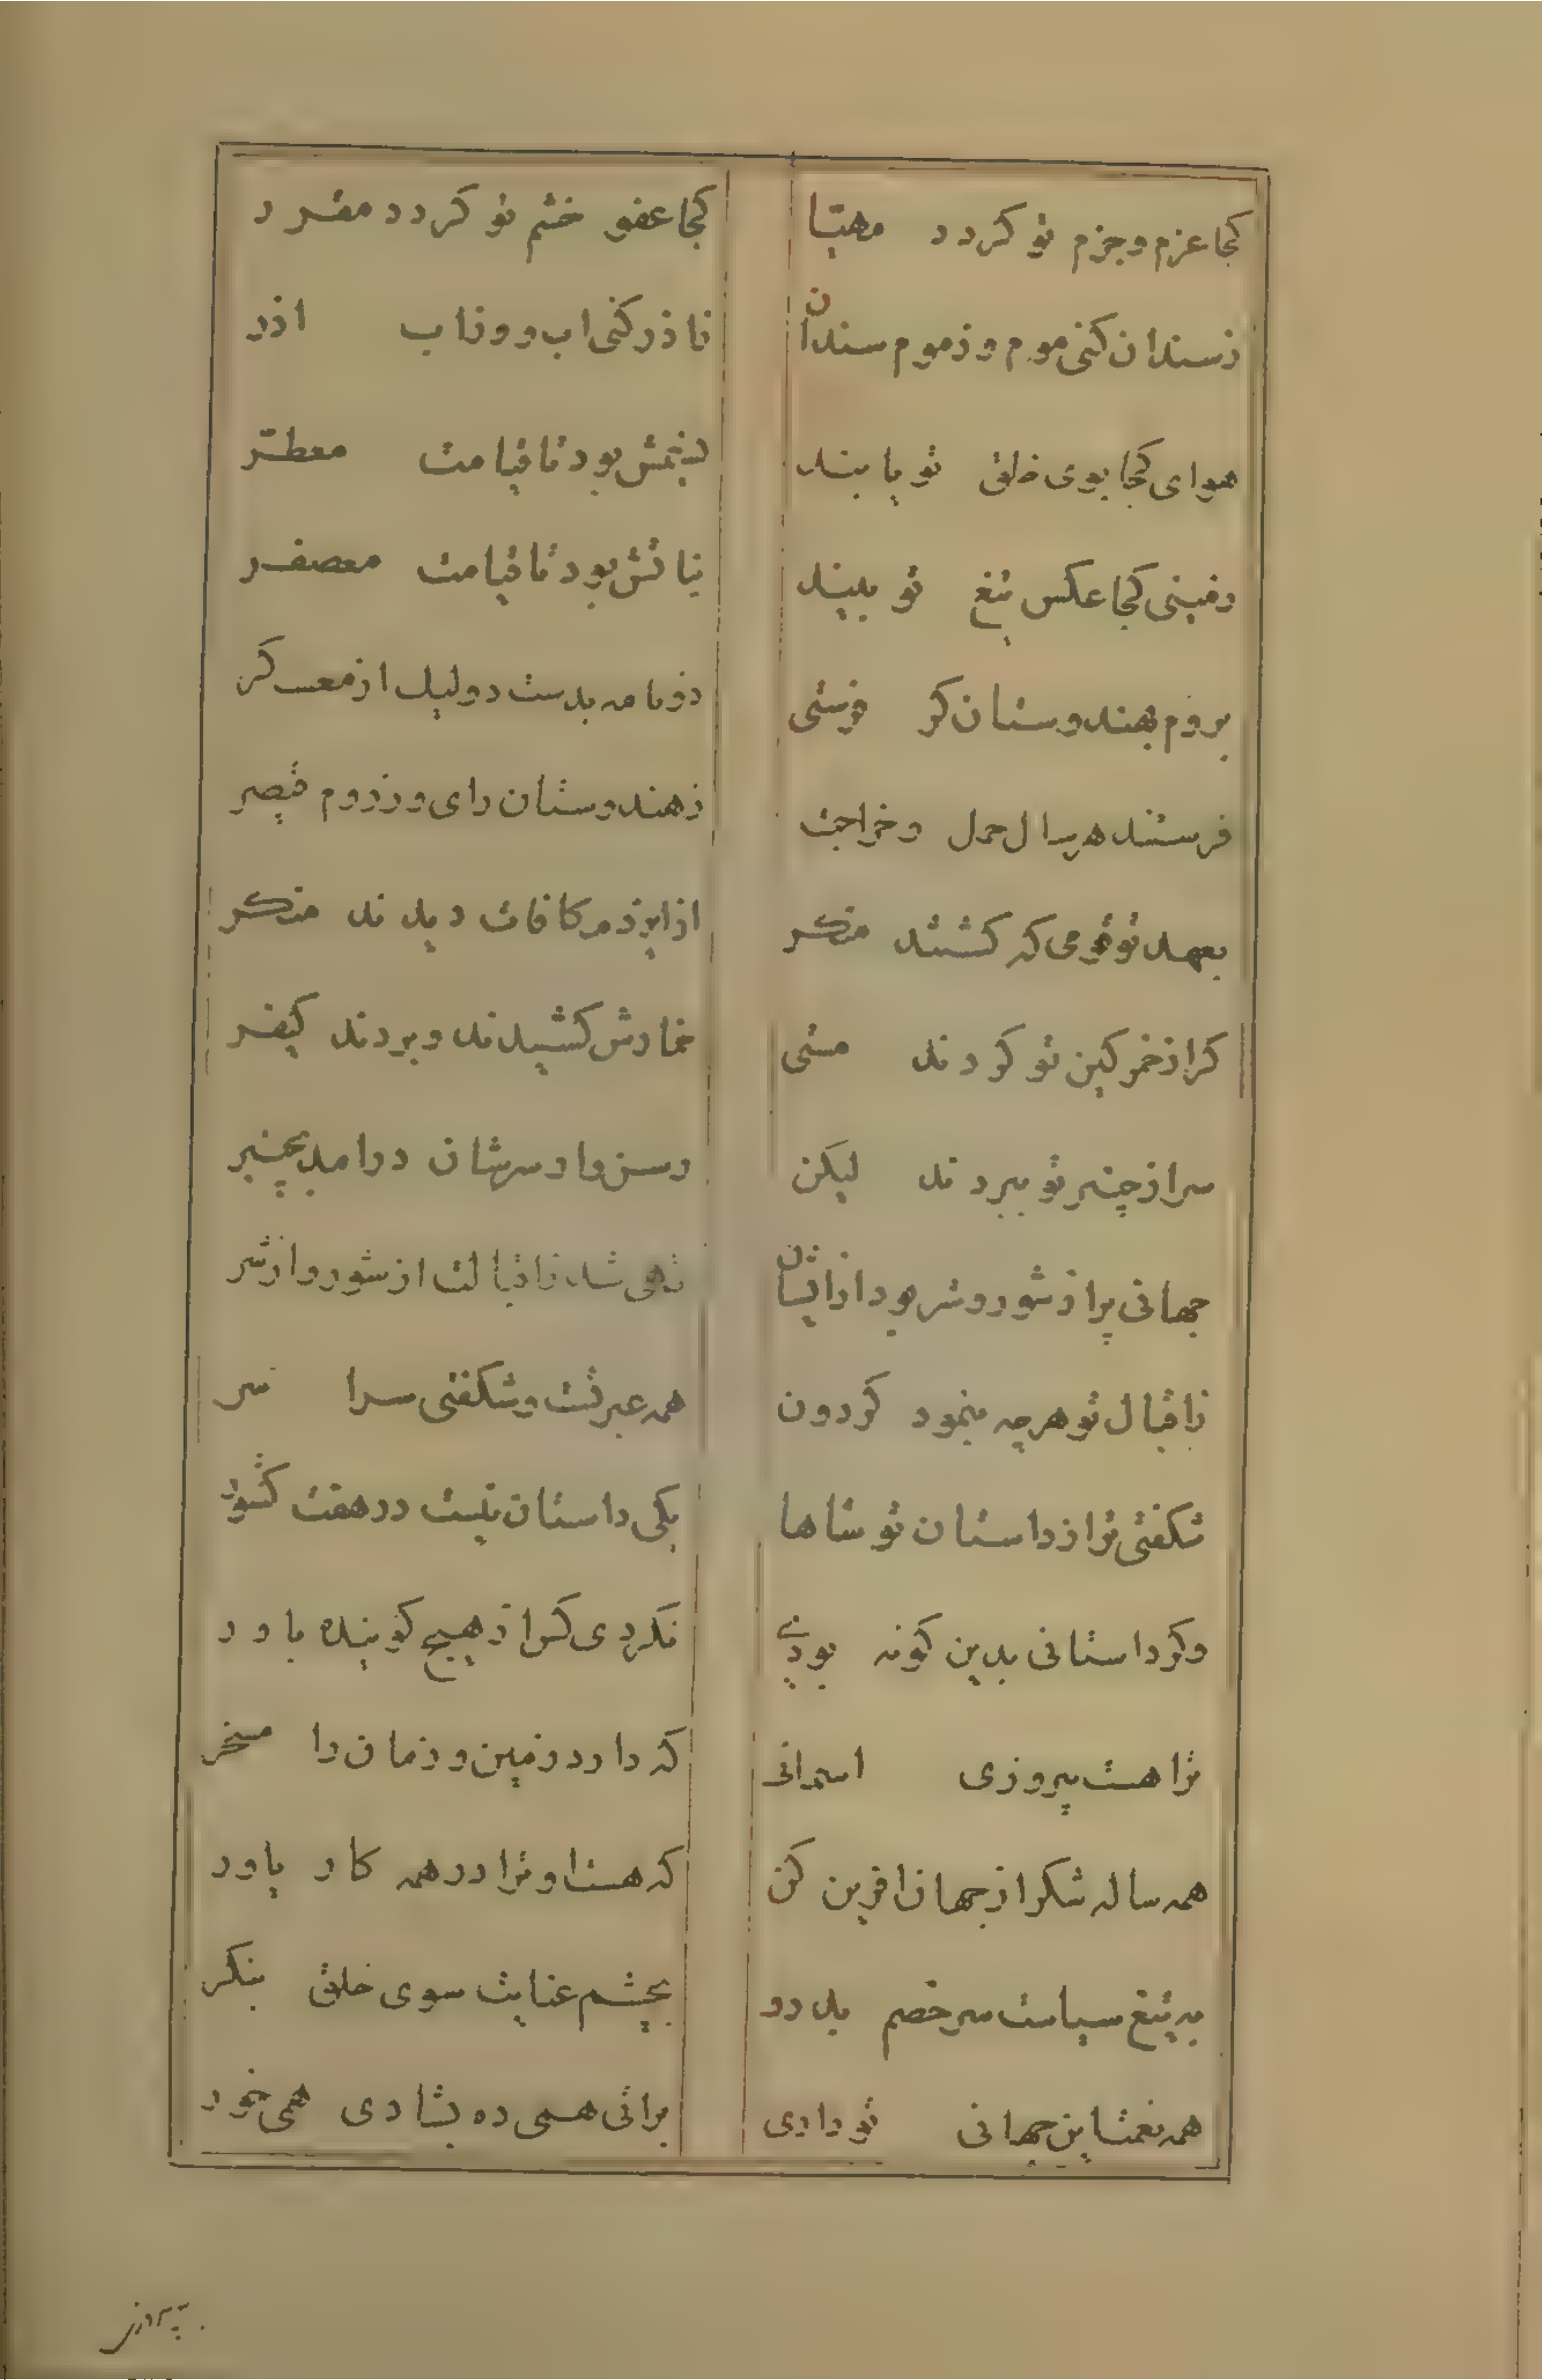 کجا عزم و جزم تو کردد مهیّا
کجا عفو خشم تو کردد مقرر
ز سندان کنی موم وز موم سندان
ز اذر کنی اب وز اب اذر
هوای کجا بوی خلق تو یابند
نسیمش بود تا قیامت معطّر
زمینی کجا عکس تیغ تو بیند
نباتش بود تا قیامت معصفر
بروم بهندوستان کر فرستی
دو نامه بدست دو لیل از معسکر
فرستند هر سال حمل و خراجت
ز هندوستان رای وز روم قیصر
بعهد تو قومی که کشتند منکر
از ایزد مکافات دیدند منکر
کر از خمر کین تو کردند مستی
خمارش کشیدند و بردند کیفر
سر از چنبر تو ببردند لیکن
رسن وار سرشان درامد بچنبر
جهانی پر از شور و شر بود از ایشان
تهی شد ز اقبالت از شور و از شر
ز اقبال تو هرچه بنمود کردون
همه عبرتست و شکفتی سراسر
شکفتی تر از داستان تو شاها
یکی داستان نیست در هفت کشور
وکر داستانی بدین کونه بودی
نکردی کس از هیچ کوینده باور
ترا هست پیروزی اسمانی
که دارد زمین و زمان را مسخر
همه ساله شکر از جهان افرین کن
که هست او ترا در همه کار یاور
به تیغ سیاست سر خصم بدرو
بچشم عنایت سوی خلق بنکر
همه نعمت این جهانی تو داری
برانی همی ده بشادی همی خور